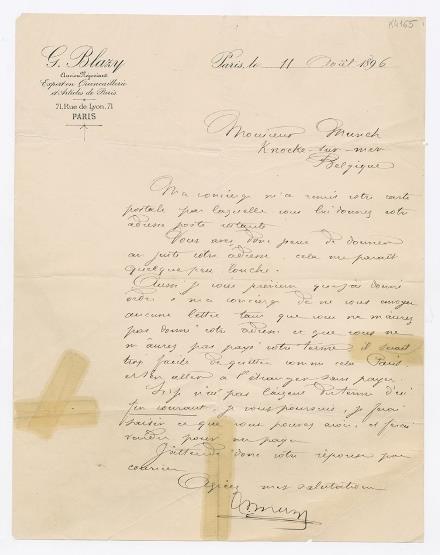 K4165
G. Blazy
Ancien Négociant
Expert en Quincaillerie
et Articles de Paris
71, Rue de Lyon, 71
PARIS
Paris, le 11 Août 1896
Monsieur Munch
Knocke-sur-mer
Belgique
Ma concierge m'a remis votre carte
postale par laquelle vous lui donnez votre
adresse poste restante
Vous avez donc peur de donner
au juste votre adresse cela me parait
quelque peu louche.
Aussi je vous préviens que j'ai donné
ordre à ma concierge de ne vous envoyer
aucune lettre tant que vous ne m'aurez
pas donné votre adresse et que vous ne
m'aurez pas payé votre terme il serait
trop facile de quitter comme cela Paris
et s'en aller à l'étranger sans payer.
Si je n'ai pas l'argent du terme d'ici
fin courant, je vous poursuis, je ferai
saisir ce que vous pouvez avoir et ferai
vendre pour me payer
J'attends donc votre réponse par
courrier
Agréez mes salutations